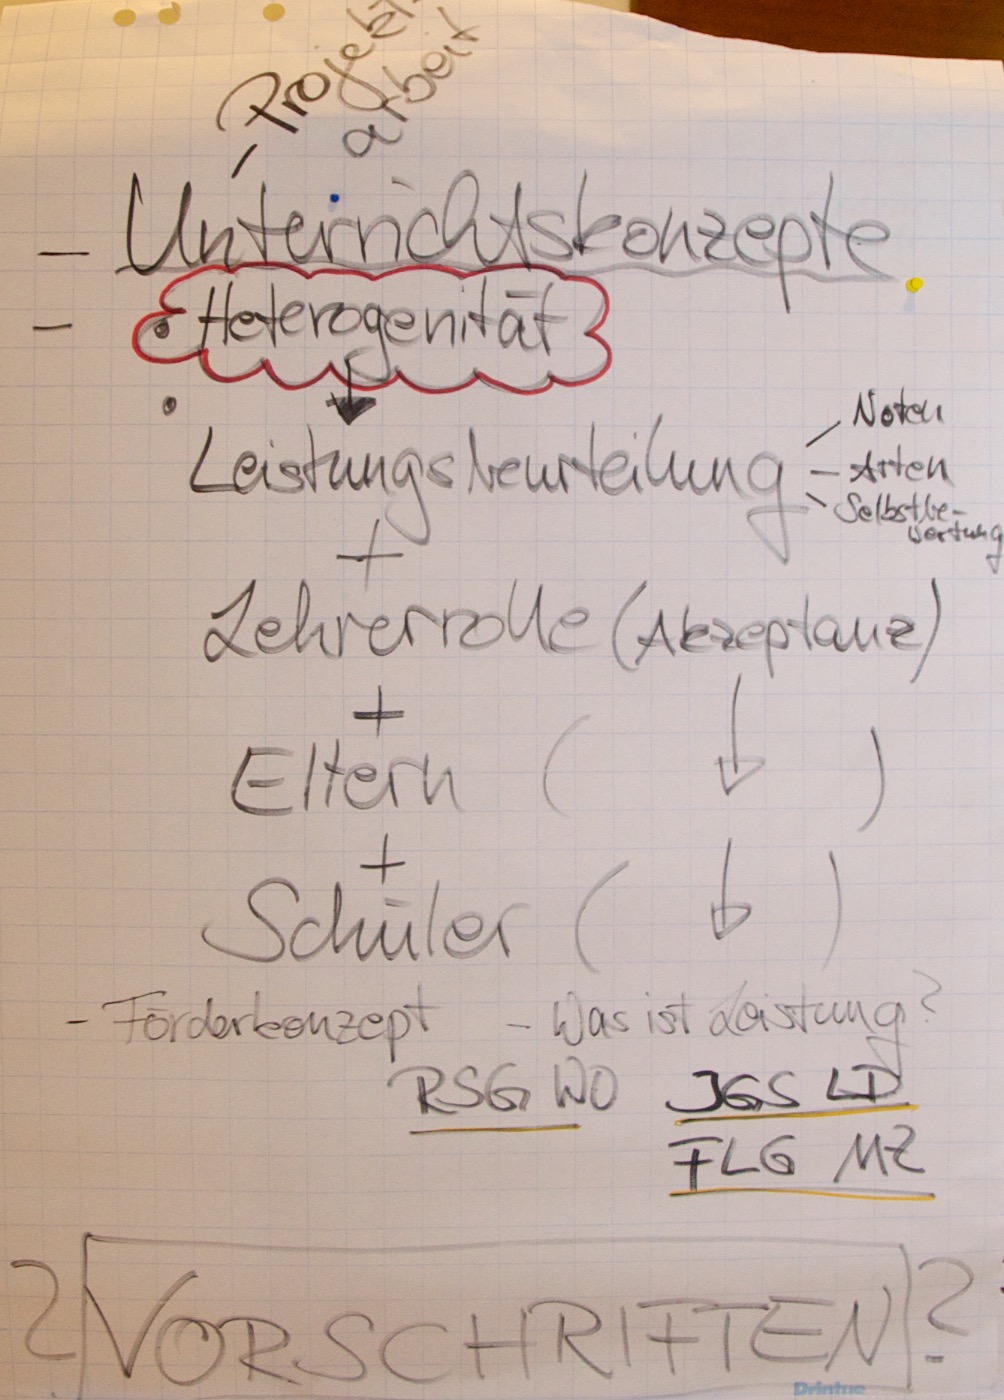 Projekt-
arbeit
– Unterrichtskonzepte
– • Heterogenität
•
Leistungsbeurteilung – Noten
– Arten
– Selbstbe-
wertung
+
Lehrerrolle (Akzeptanz)
+
Eltern ( ↓ )
+
Schüler ( ↓ )
- Förderkonzept - Was ist Leistung?
RSG WO JGS LD
FLG MZ
? VORSCHRIFTEN ?